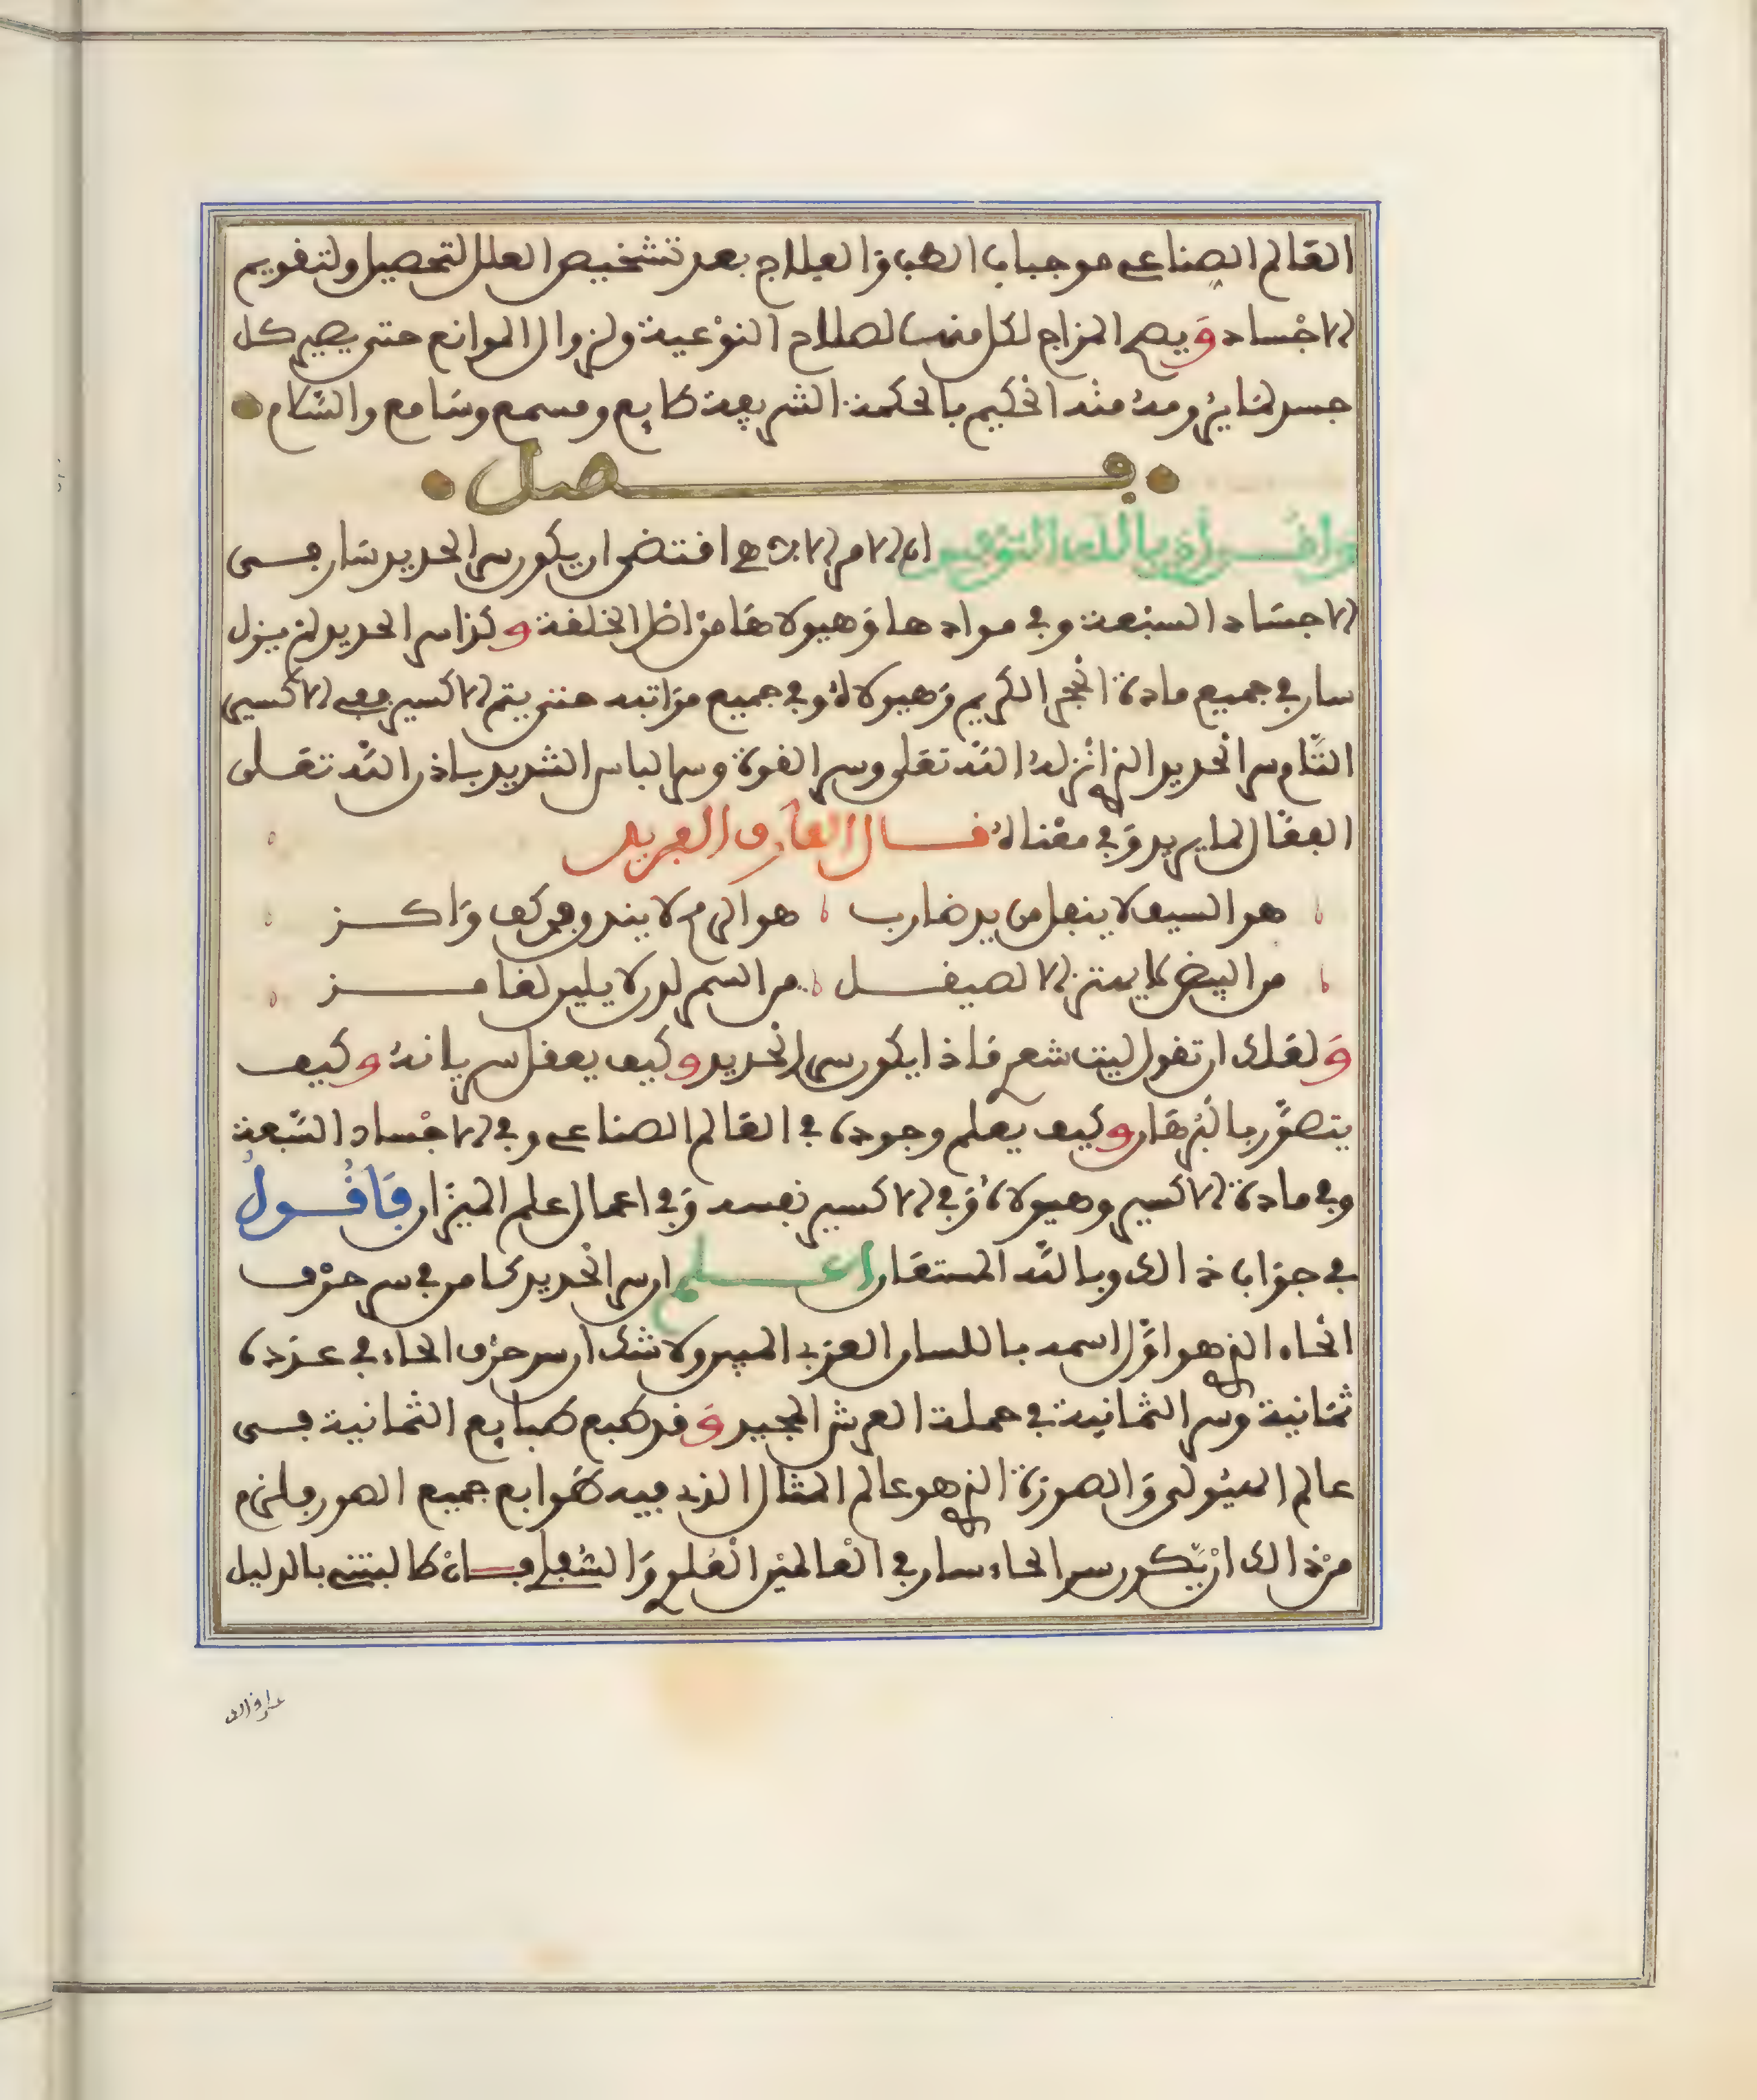 العَالم الصناعي موجبات الطب والعلاج بعد تشخيص العلل لتحصيل ولتقويم
الاجْساد وَيصح المزاج لكل منها لصلاح النوْعية ولزوال الموانع حتى يصير كل
جسد لما يرومه منه الحكيم بالحكمة الشريفة طايع ومسمع وسَامع والسّلام
فصل
واقول وبالله التوفيق ان الامر الالاهي اقتضى ان يكون سر الحديد سَار في
الاجسَاد السبْعة وفي موادها وَهيولاهَا من اصْل الخلقة وكذا سر الحديد لم يزل
سار في جميع مادة الحجر الكريم وَهيولاهُ وفي جميع مرَاتبه حتى يتم الاكسير ففي الاكسير
التّام سر الحديد الذي انْزلهُ اللّه تعَلى وسر القوة وسر الباس الشديد باذن اللّه تعَلى
الفعّال لما يريد وَفي معْناهُ قال العَارف الفريد
هو السيف لا ينفل من يد ضارب هو الرمح لا يندو في كف وَاكز
من البيض لا يهتز الا لصيقل من السمر لدن لا يلين لغامز
وَلعَلك ان تقول ليت شعري مَاذا يكون سر الحديد وكيف يعقل سريانهُ وكيف
يتصوَّر بالبُرهَان وكيف يعلم وجودهُ في العَالم الصناعي وفي الاجْساد السّبعة
وفي مادة الاكسير وهيولاهُ وَفي الاكسير نفسه وَفي اعمال علم الميزَان فَاقُولُ
في جوَاب ذالك وباللّه المستعَان اعلم ان سر الحديد كامن في سر حرْف
الحاء الذي هو اوَّل اسمه باللسان العربي المبين ولا شك ان سر حرْف الحاء في عدَده
ثمَانية وسر الثمَانِية في حملة العرش المجيد وَقد طبع طبايع الثمانية في
عالم الهيُولى وَالصورَة الذي هو عالم المثال الذي فيه طَوابع جميع الصور فلزم
منْ ذالك ان يَّكون سر الحاء سار في الْعالميْن الْعُلوي وَالسُفلي فان طالبتني بالدليل
على ذالك